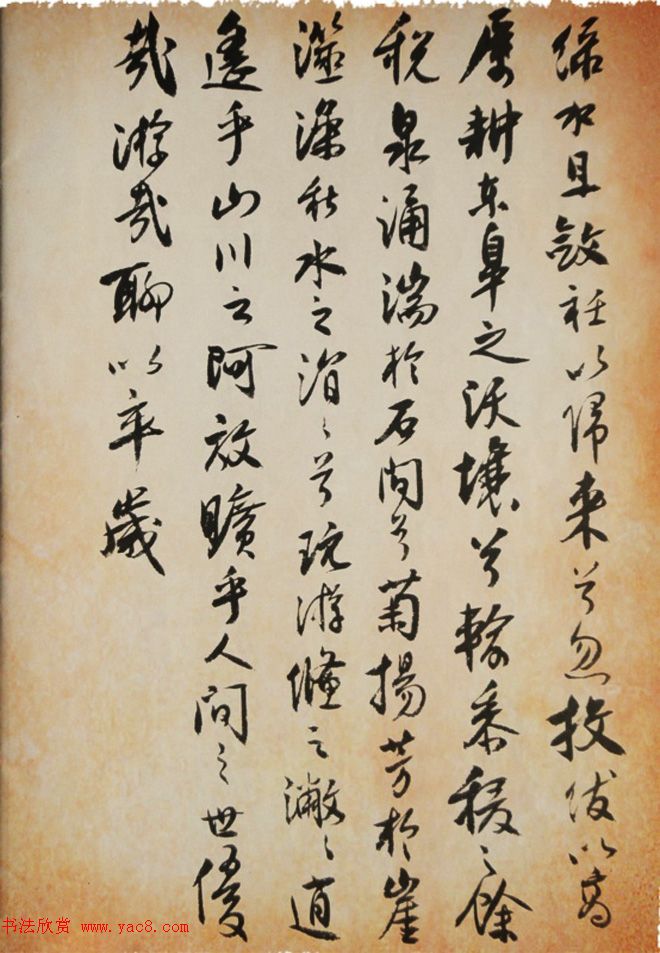 綠水且斂衽以歸來兮忽投紱以高
厲耕東皋之沃壤兮輸黍稷之餘
稅泉涌湍於石間兮菊揚芳於崖
澨澡秋水之涓々兮玩游鯈之潎々逍
遙乎山川之阿放曠乎人間之世優
哉游哉聊以卒歲
书法欣赏 www.yac8.com